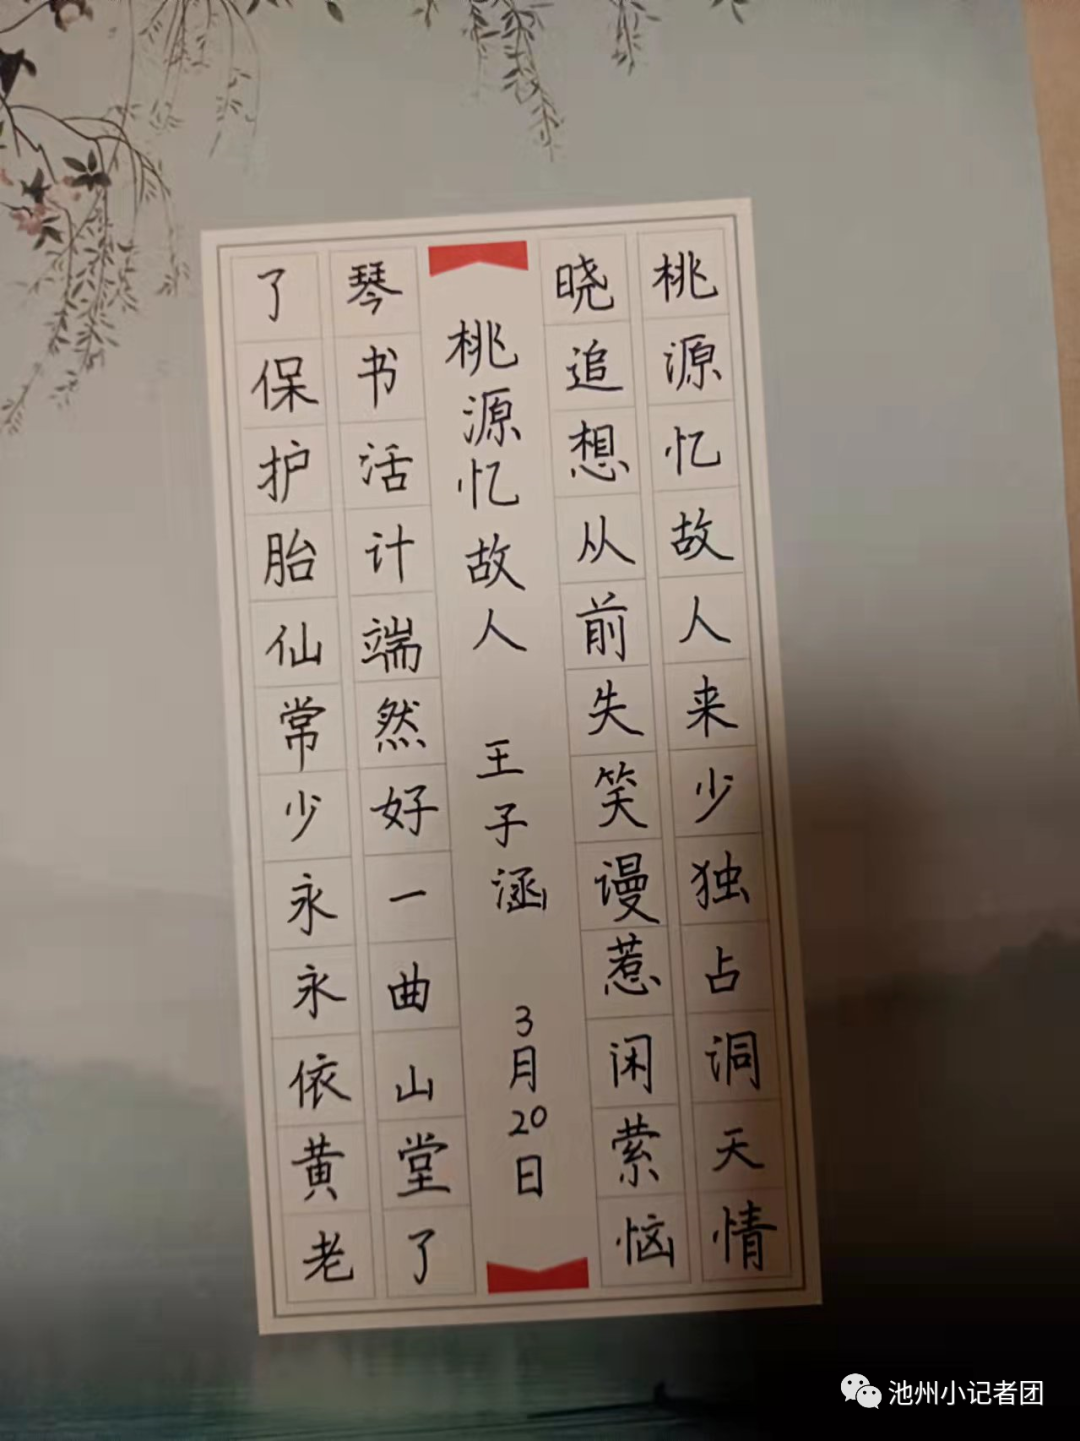 桃源忆故人来少独占洞天情
晓追想从前失笑谩惹闲萦恼
桃源忆故人 王子涵 3月20日
琴书活计端然好一曲山堂了
了保护胎仙常少永永依黄老
池州小记者团